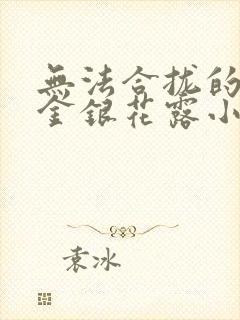 無法合拢的
金银花露小
袁冰